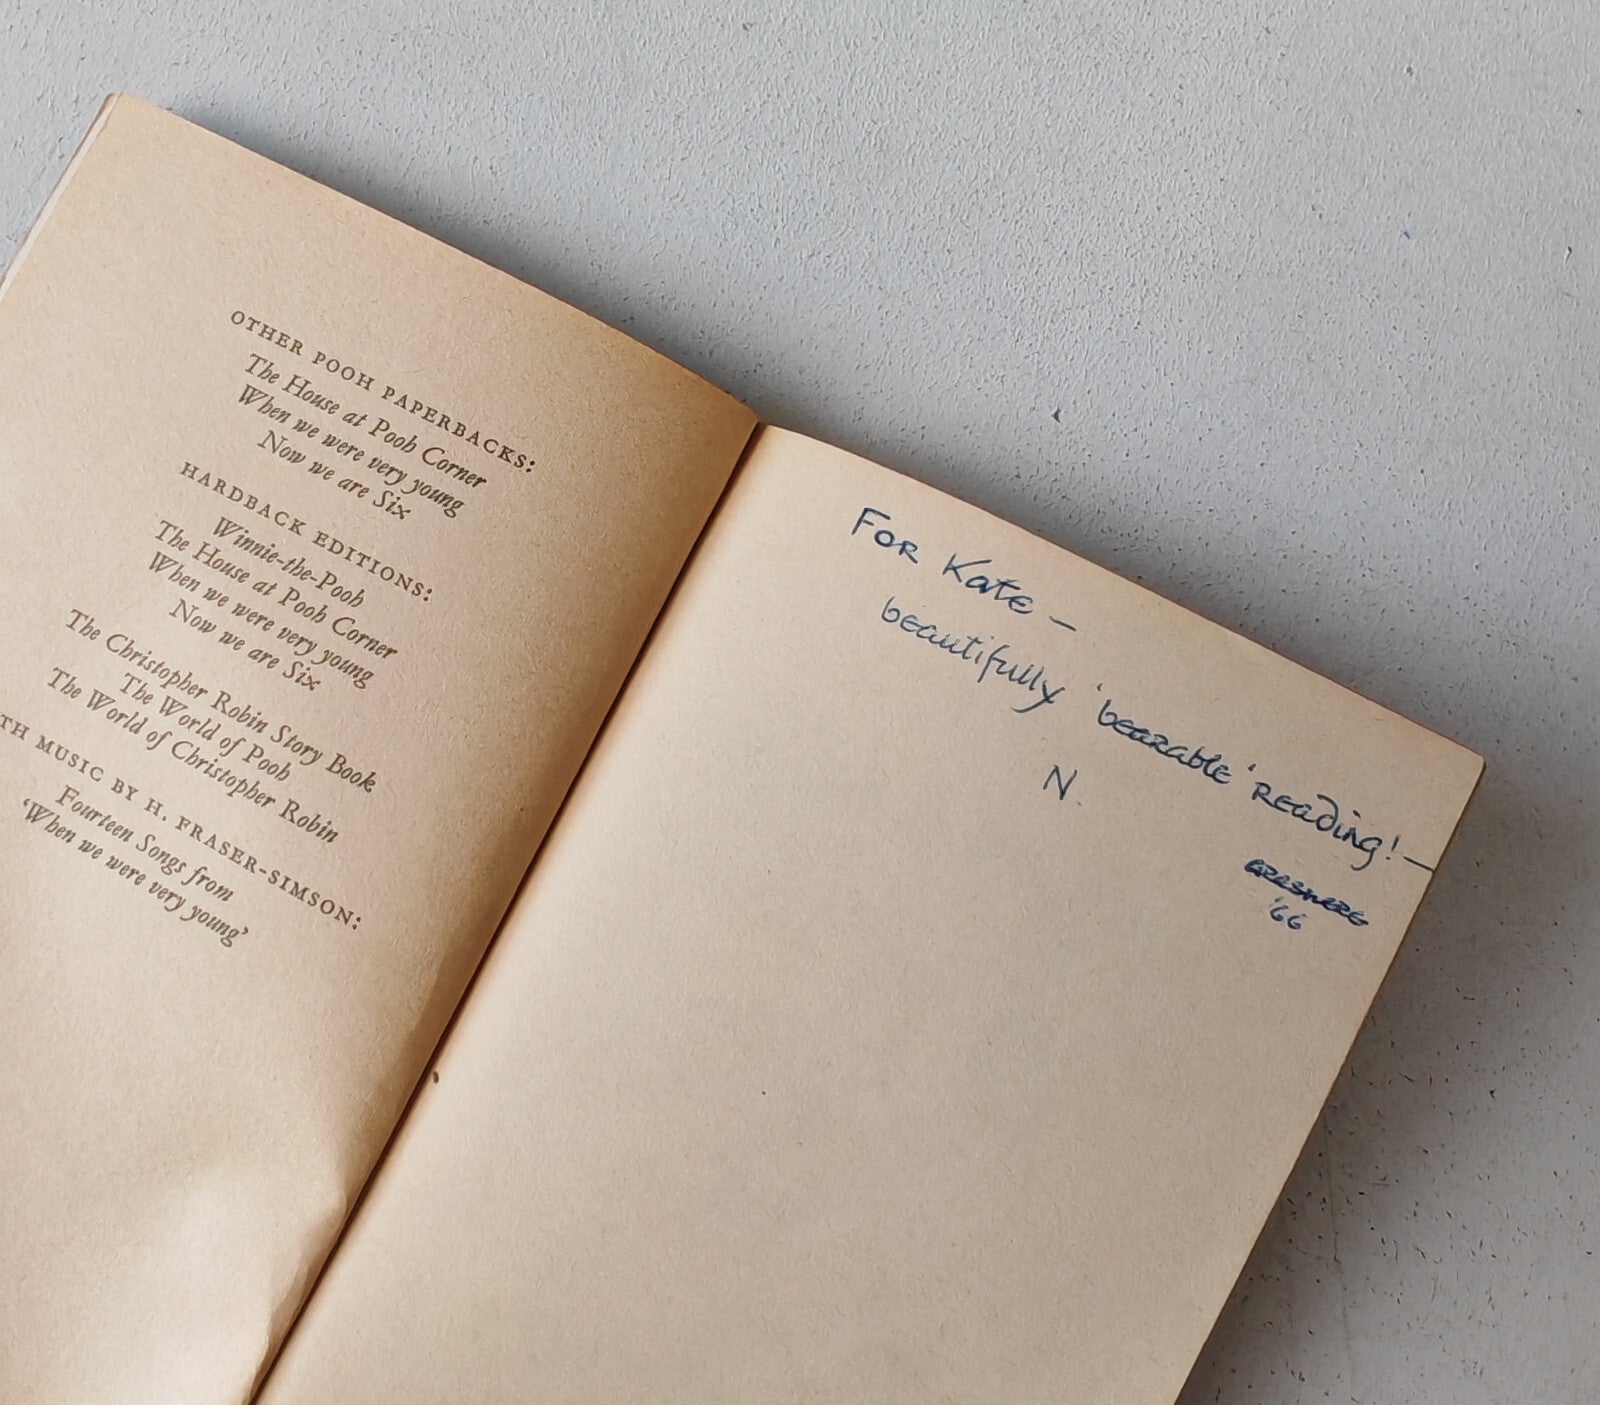 OTHER POOH PAPERBACKS:
The House at Pooh Corner
When we were very young
Now we are Six
HARDBACK EDITIONS:
Winnie-the-Pooh
The House at Pooh Corner
When we were very young
Now we are Six
The Christopher Robin Story Book
The World of Pooh
The World of Christopher Robin
TH MUSIC BY H. FRASER-SIMSON:
Fourteen Songs from
‘When we were very young’
FOR Kate –
beautifully 'bearable' reading! –
N
GRASMERE
'66